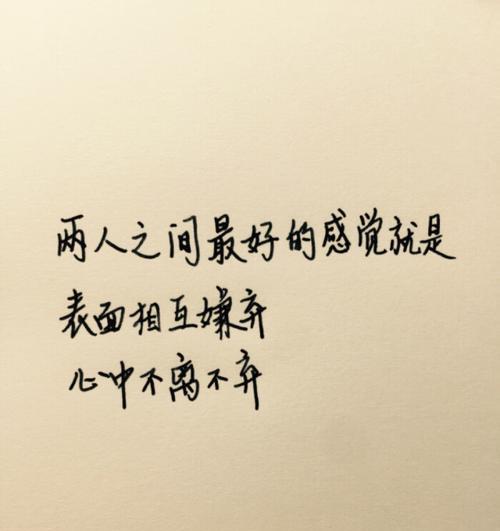 两人之间最好的感觉就是
表面相互嫌弃
心中不离不弃